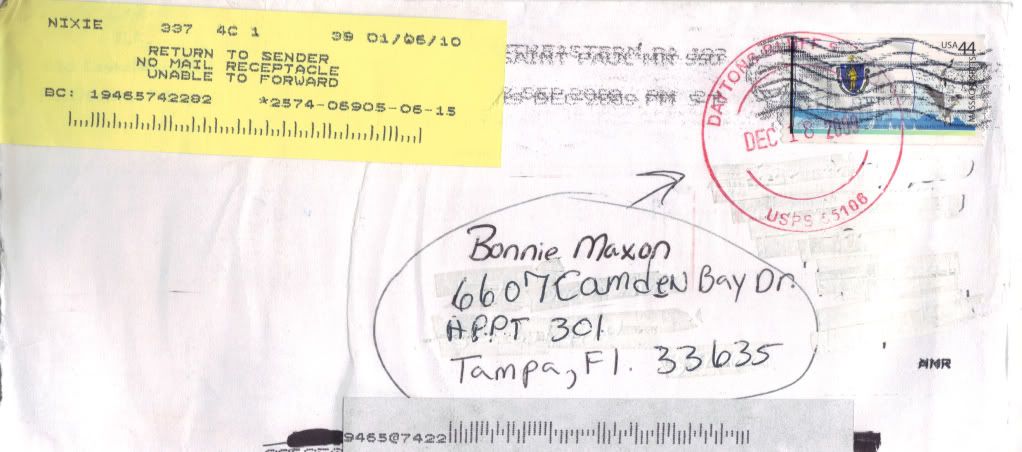 NIXIE 337 4C 1 39 01/06/10
RETURN TO SENDER
NO MAIL RECEPTACLE
UNABLE TO FORWARD
BC: 19465742282 *2574-06905-06-15
SAINT PAUL MN
PM
USA 44
MASSACHUSETTS
DAYTONS
DEC 18
USPS 55106
Bonnie Maxon
6607 Camden Bay Dr.
APPT 301
Tampa, Fl. 33635
NMR
9465@7422